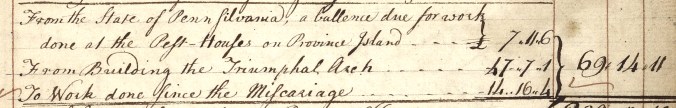 From the State of Pennsilvania, a ballence due for work
done at the Pest-Houses on Province Island - - - £ 7..11..6
From Building the Triumphal Arch - - - - - 47..7..1 69..14..11
To Work done since the Miscariage - - - - 14..16..4